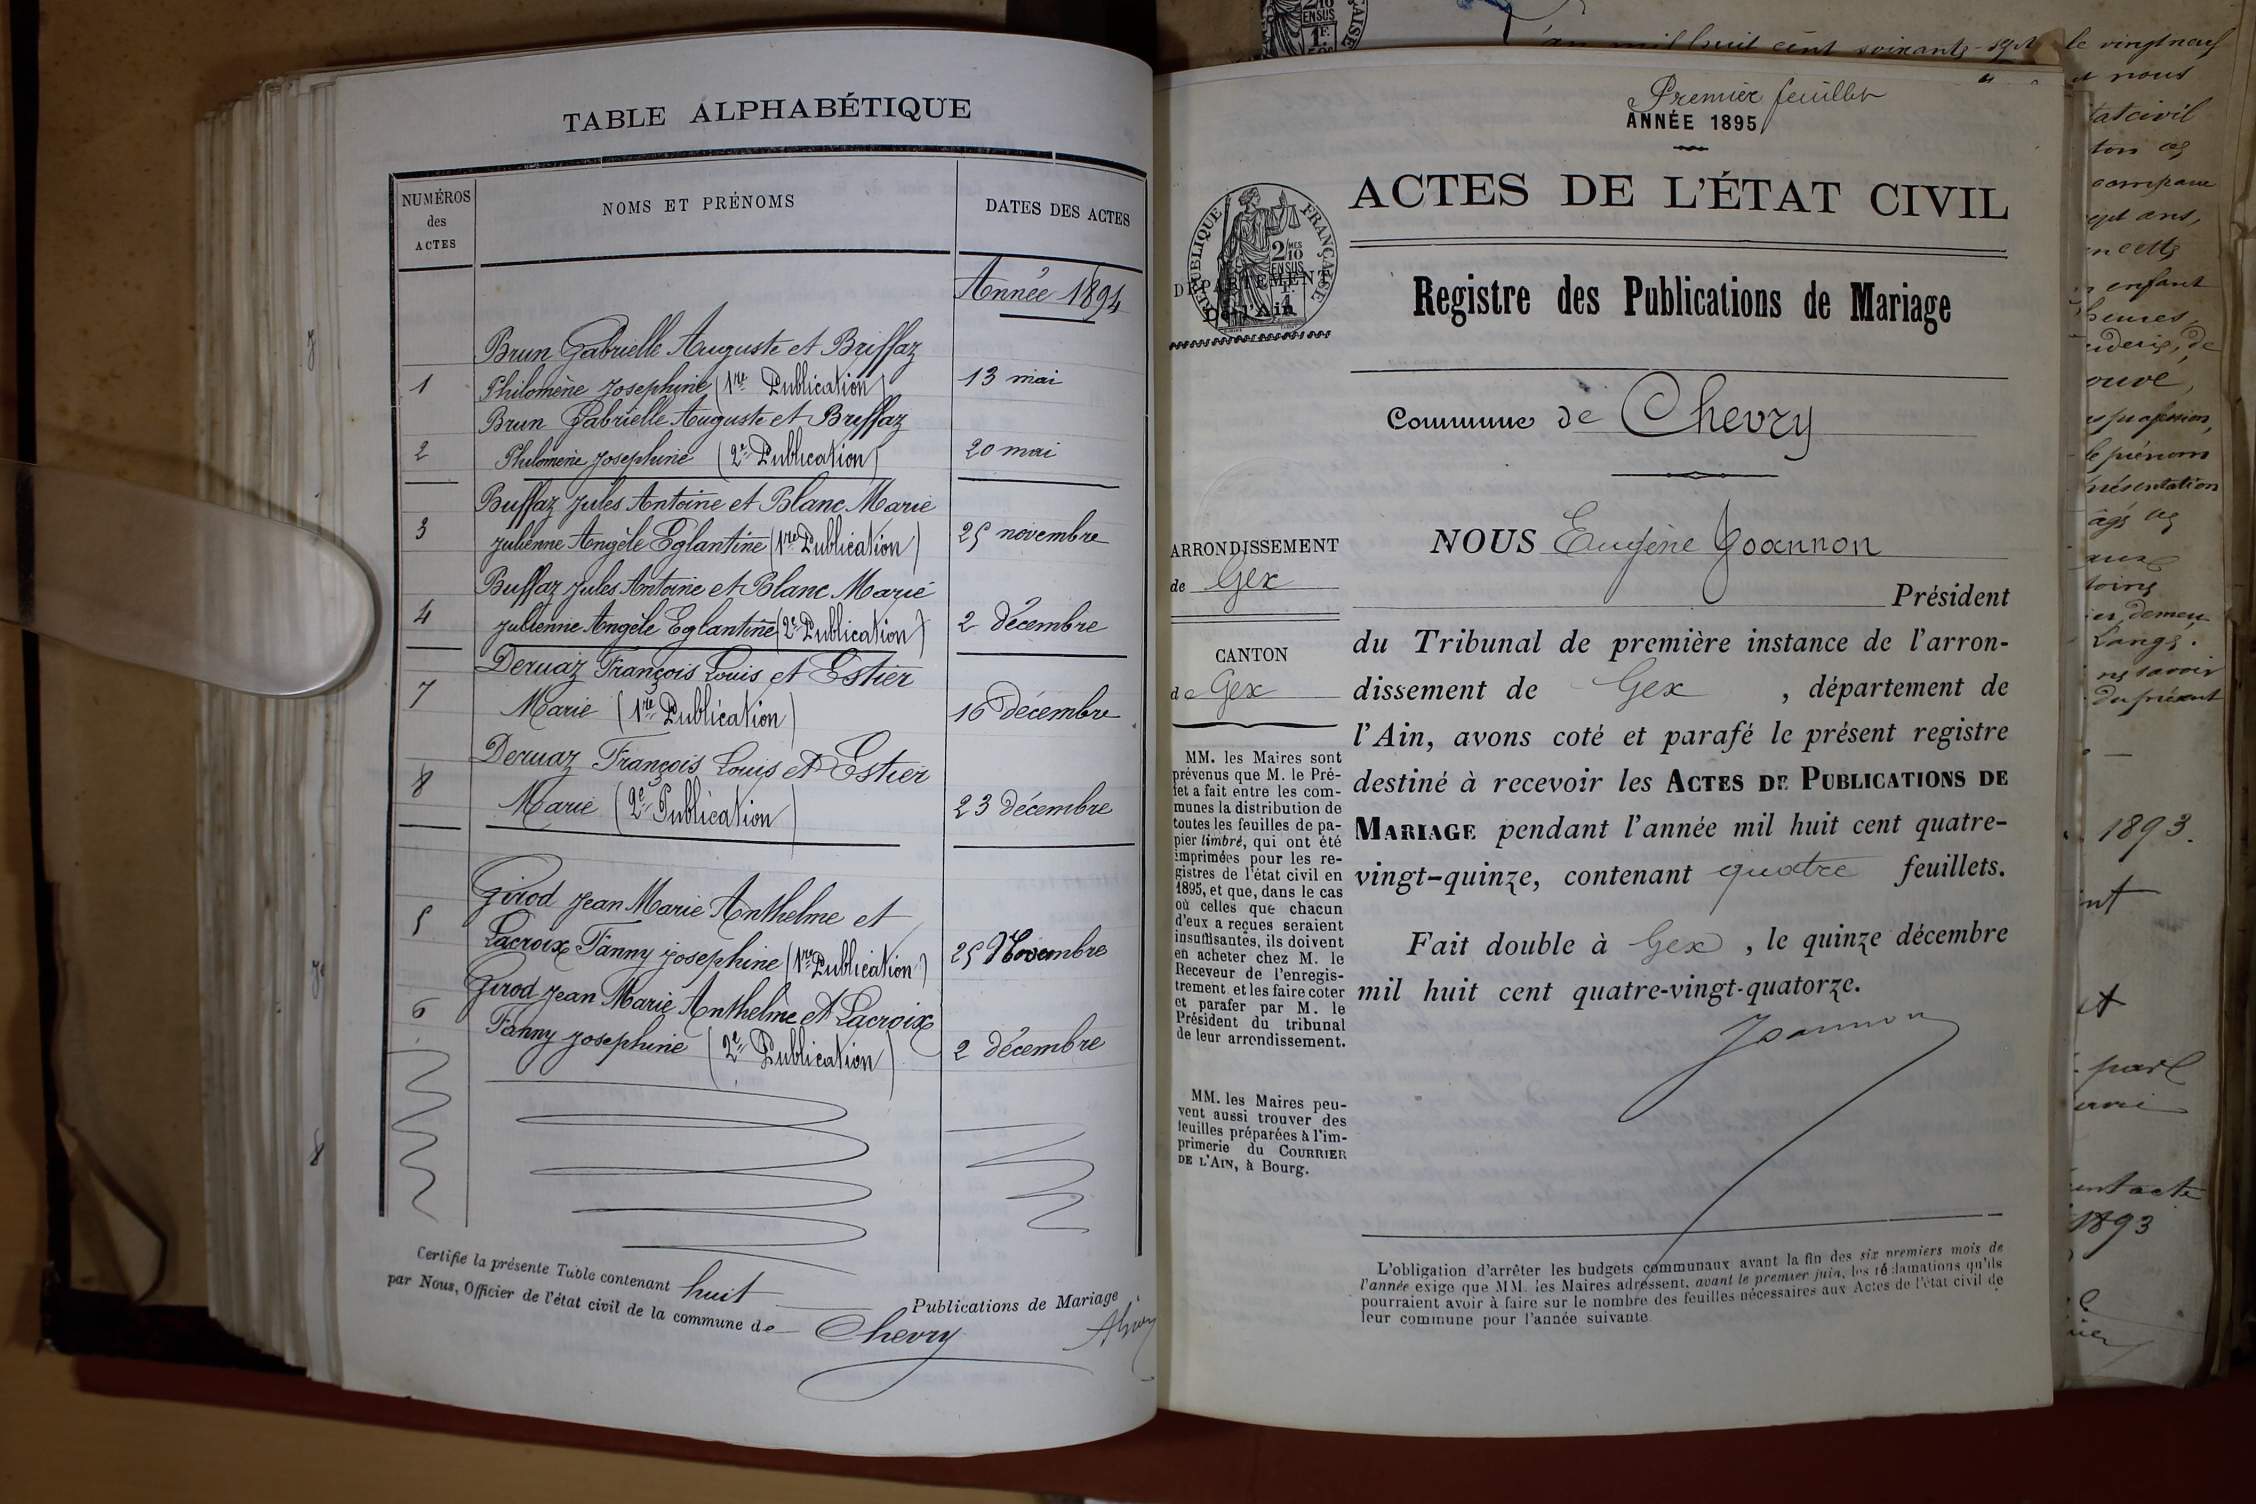 TABLE ALPHABÉTIQUE
NUMÉROS
des
ACTES
NOMS ET PRÉNOMS
DATES DES ACTES
Année 1894
Brun Gabrielle Auguste et Briffaz
1 Philomène Josephine (1re Publication) 13 mai
Brun Gabrielle Auguste et Briffaz
2 Philomène Josephine (2e Publication) 20 mai
Buffaz Jules Antoine et Blanc Marie
3 Julienne Angèle Eglantine (1re Publication) 25 novembre
Buffaz Jules Antoine et Blanc Marie
4 Julienne Angèle Eglantine (2e Publication) 2 décembre
Deruaz François Louis et Estier
7 Marie (1re Publication) 16 décembre
Deruaz François Louis et Estier
8 Marie (2e Publication) 23 décembre
Girod Jean Marie Anthelme et
5 Lacroix Fanny Josephine (1re Publication) 25 Novembre
Girod Jean Marie Anthelme et Lacroix
6 Fanny Josephine (2e Publication) 2 décembre
Certifie la présente Table contenant huit Publications de Mariage
par Nous, Officier de l'état civil de la commune de Chevry
Premier feuillet
ANNÉE 1895
ACTES DE L'ÉTAT CIVIL
RÉPUBLIQUE FRANÇAISE
2/10
MES
EN SUS
DÉPARTEMENT
De l'Ain
Registre des Publications de Mariage
Commune de Chevry
ARRONDISSEMENT
de Gex
CANTON
de Gex
MM. les Maires sont
prévenus que M. le Pré-
fet a fait entre les com-
munes la distribution de
toutes les feuilles de pa-
pier timbré, qui ont été
imprimées pour les re-
gistres de l'état civil en
1895, et que, dans le cas
où celles que chacun
d'eux a reçues seraient
insuffisantes, ils doivent
en acheter chez M. le
Receveur de l'enregis-
trement et les faire coter
et parafer par M. le
Président du tribunal
de leur arrondissement.
MM. les Maires peu-
vent aussi trouver des
feuilles préparées à l'im-
primerie du COURRIER
DE L'AIN, à Bourg.
NOUS Eugène Joannon
Président
du Tribunal de première instance de l'arron-
dissement de Gex, département de
l'Ain, avons coté et parafé le présent registre
destiné à recevoir les ACTES DE PUBLICATIONS DE
MARIAGE pendant l'année mil huit cent quatre-
vingt-quinze, contenant quatre feuillets.
Fait double à Gex, le quinze décembre
mil huit cent quatre-vingt-quatorze.
Joannon
L'obligation d'arrêter les budgets communaux avant la fin des six premiers mois de
l'année exige que MM. les Maires adressent, avant le premier juin, les réclamations qu'ils
pourraient avoir à faire sur le nombre des feuilles nécessaires aux Actes de l'état civil de
leur commune pour l'année suivante.
an mil huit cent soixante-sept le vingt neuf
nous
ans,
enfant
heures,
profession,
le prénom
présentation
savoir
du présent
1893.
par
acte
1893